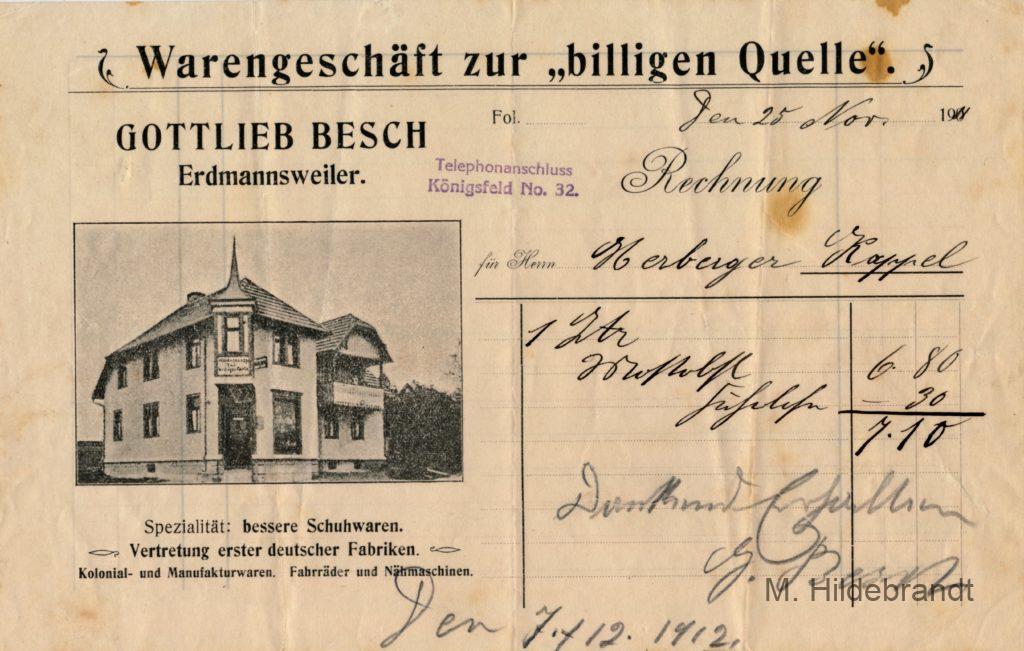 Warengeschäft zur „billigen Quelle“.
GOTTLIEB BESCH
Erdmannsweiler.
Fol.
Den 25 Nov. 191
Telephonanschluss
Königsfeld No. 32.
Rechnung
für Herrn Herberger Kappel
1 Ztr
Mostobst 6. 80
Fuhrlohn – 30
7.10
Dankend Erhalten
G. Besch
Spezialität: bessere Schuhwaren.
Vertretung erster deutscher Fabriken.
Kolonial- und Manufakturwaren. Fahrräder und Nähmaschinen.
Den 7./12. 1912.
M. Hildebrandt